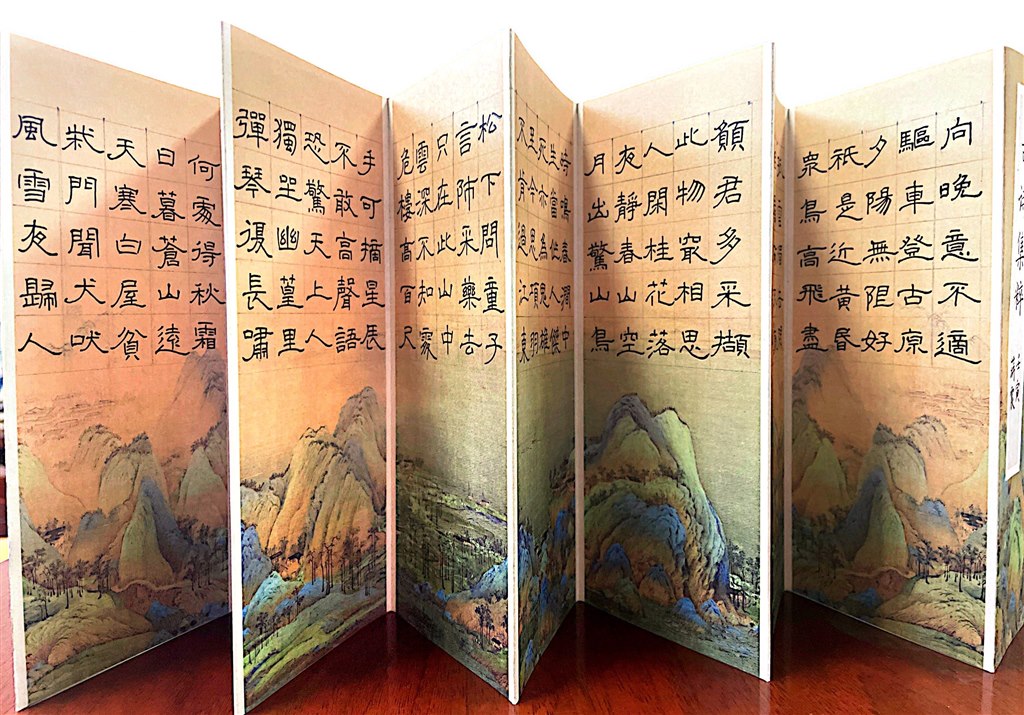 向晚意不適
驅車登古原
夕陽無限好
祇是近黃昏
衆鳥高飛盡
願君多采擷
此物最相思
人閑桂花落
夜靜春山空
月出驚山鳥
時鳴春澗中
生當作人傑
死亦為鬼雄
至今思項羽
不肯過江東
松下問童子
言師采藥去
只在此山中
雲深不知處
危樓高百尺
手可摘星辰
不敢高聲語
恐驚天上人
獨坐幽篁里
彈琴復長嘯
何處得秋霜
日暮蒼山遠
天寒白屋貧
柴門聞犬吠
風雪夜歸人